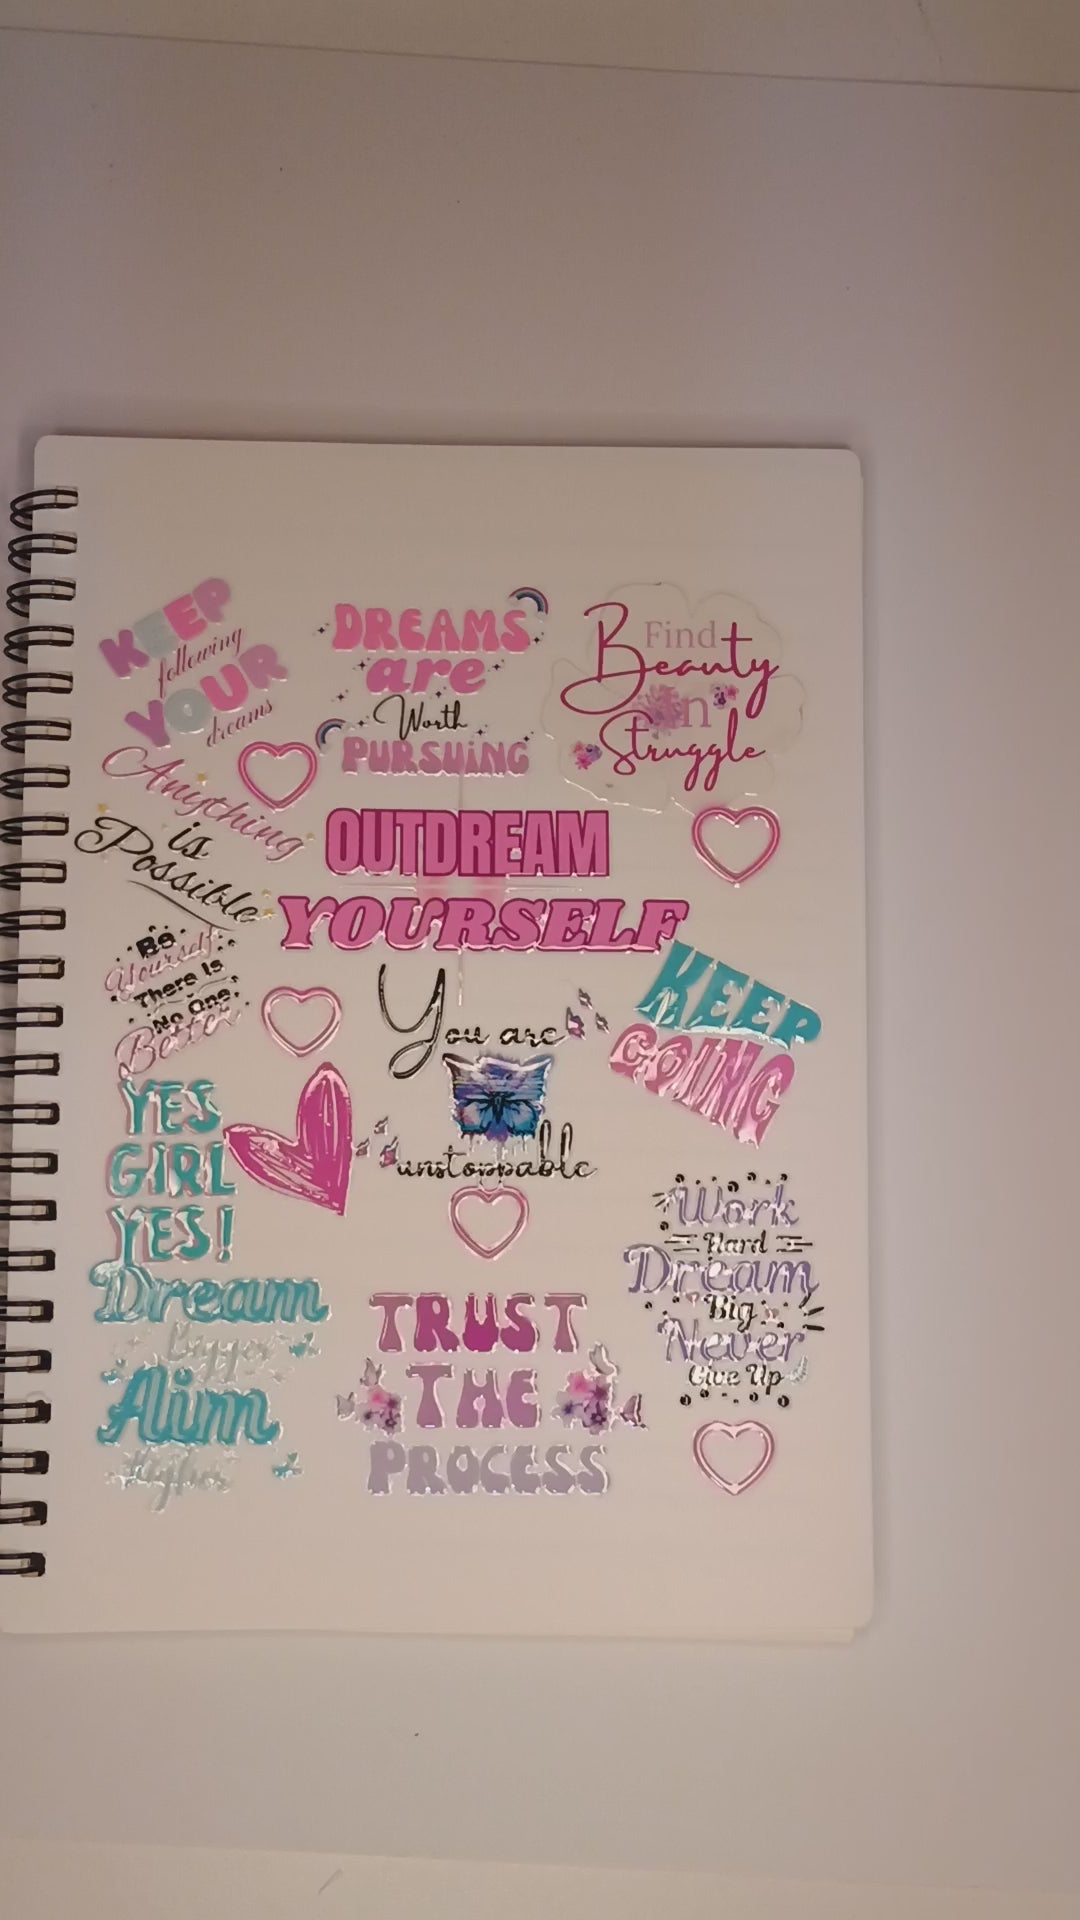 KEEP
following
YOUR
dreams
DREAMS
are
Worth
PURSUING
Find
Beauty
in
Struggle
Anything
is
Possible
OUTDREAM
YOURSELF
Be
Yourself
There Is
No One
Better
You are
unstoppable
KEEP
GOING
YES
GIRL
YES!
Dream
Bigger
Aim
Higher
TRUST
THE
PROCESS
Work
Hard
Dream
Big
Never
Give Up